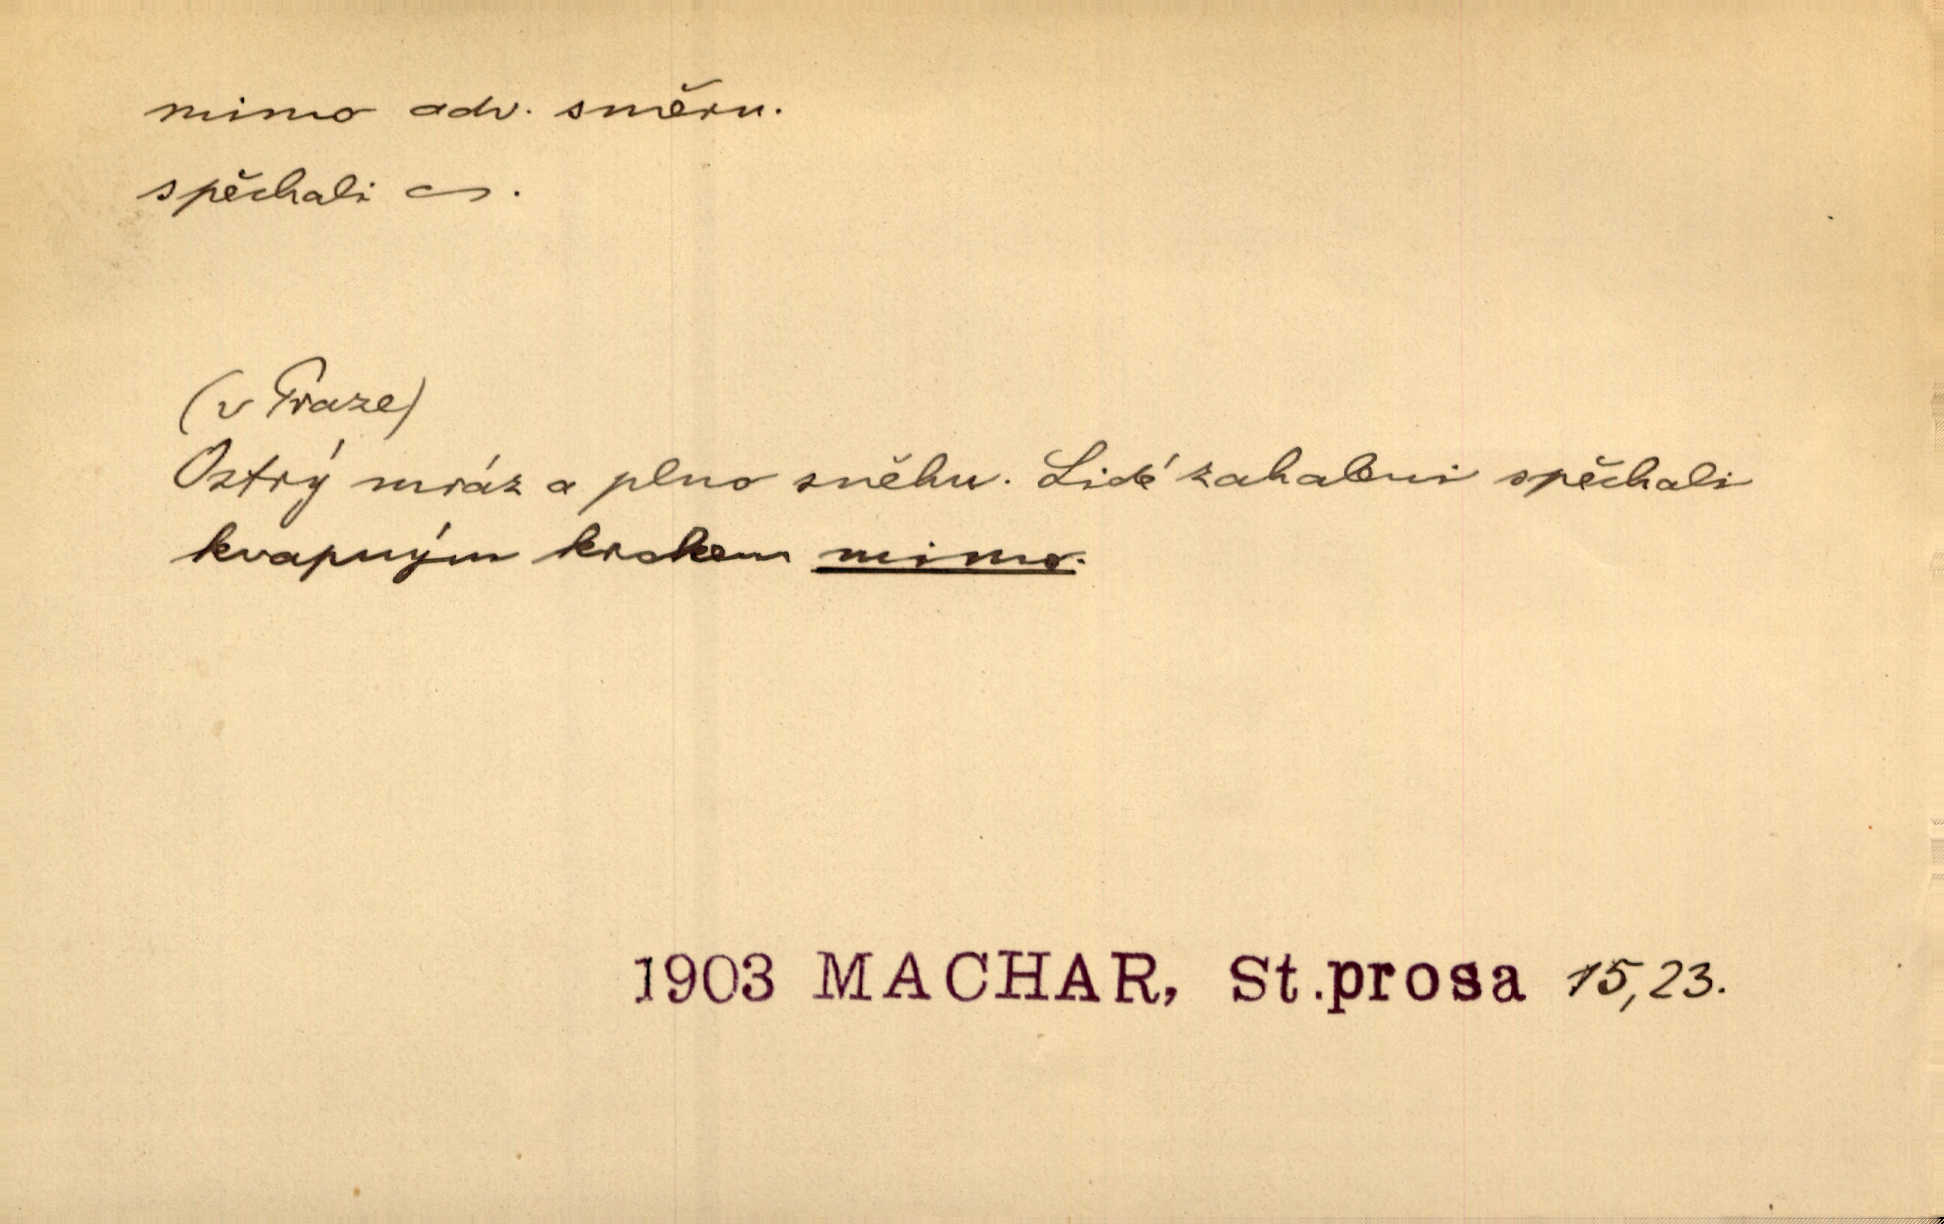 mimo adv. směru.
spěchali ~.
(v Praze)
Ostrý mráz a plno sněhu. Lidé zahaleni spěchali
kvapným krokem mimo.
1903 MACHAR, St.prosa 15,23.